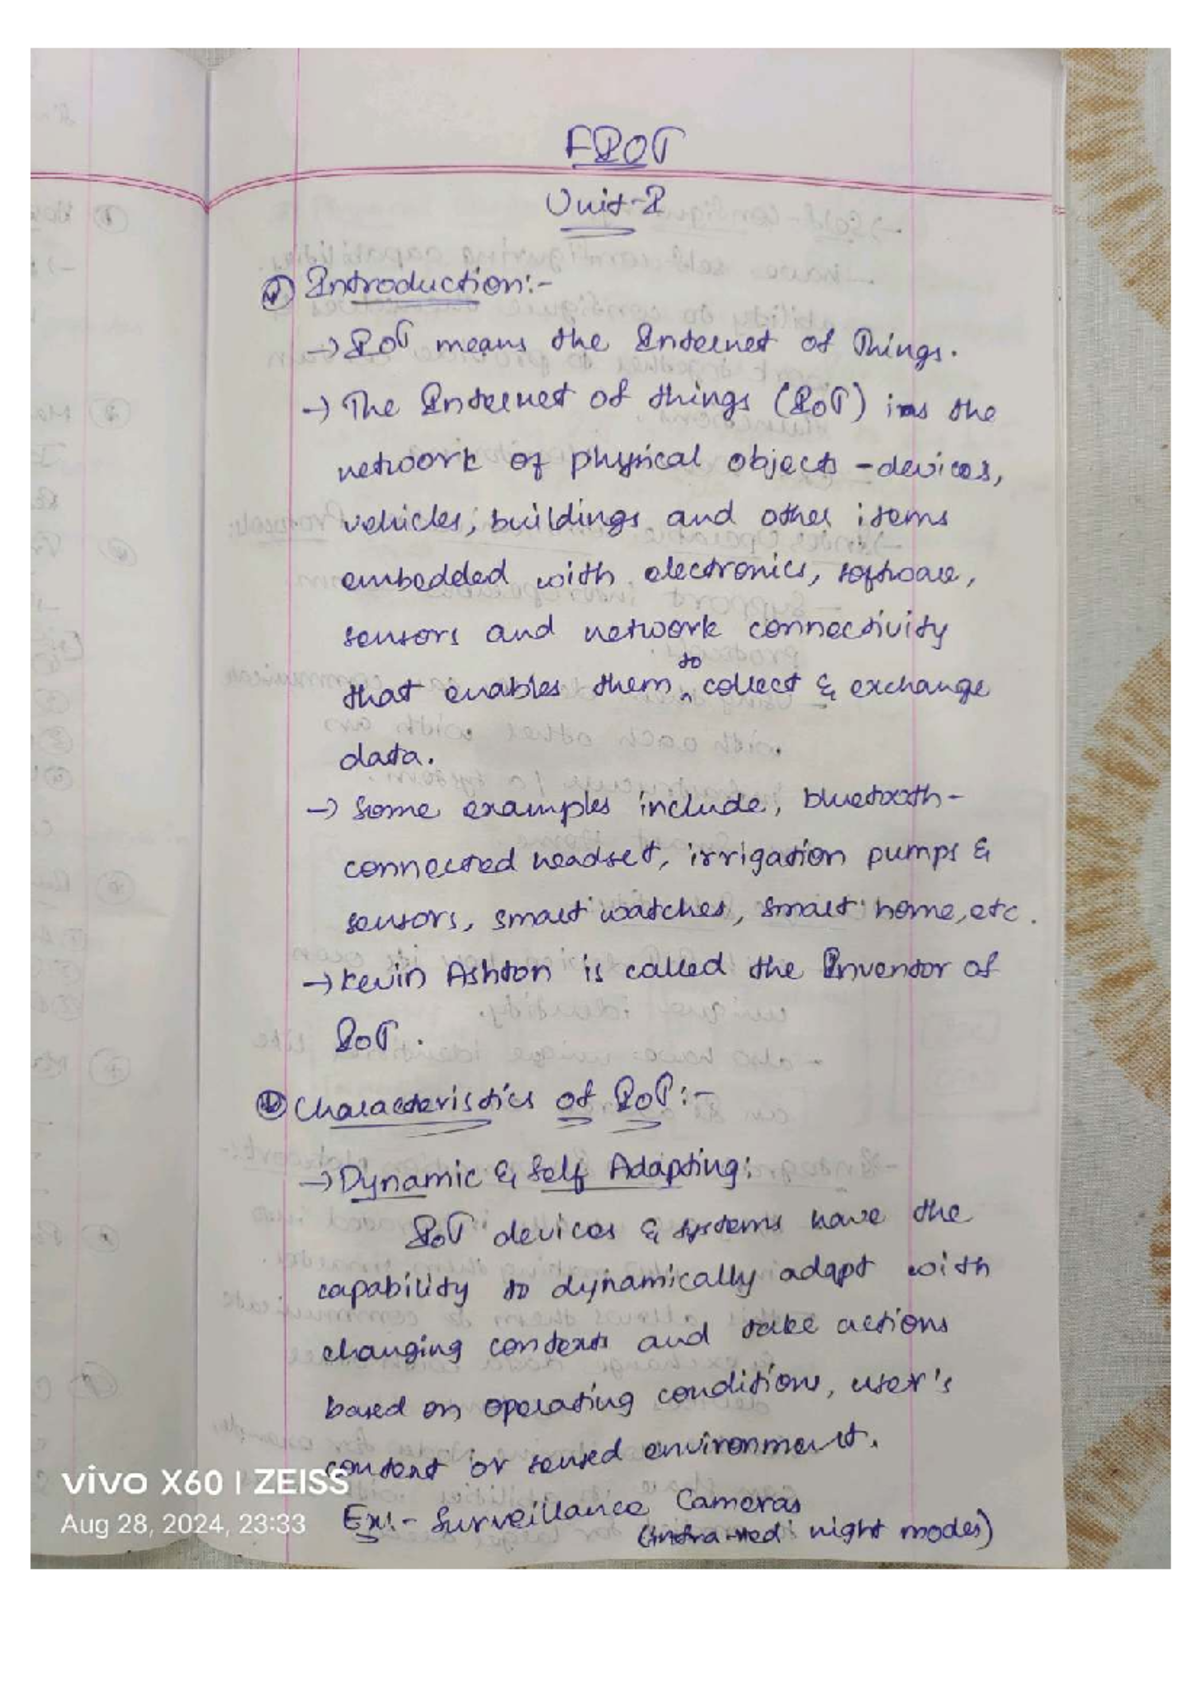 FIOT
Unit-I
① Introduction:-
→ IOT means the Internet of Things.
→ The Internet of things (IOT) is the
network of physical objects - devices,
vehicles, buildings and other items
embedded with electronics, software,
sensors and network connectivity
that enables them to collect & exchange
data.
→ Some examples include, bluetooth-
connected headset, irrigation pumps &
sensors, smart watches, smart home, etc.
→ Kevin Ashton is called the Inventor of
IOT.
Characteristics of IOT:-
→ Dynamic & Self Adapting:
IOT devices & systems have the
capability to dynamically adapt with
changing contexts and take actions
based on operating conditions, user's
context or sensed environment.
Ex:- Surveillance Cameras
(infra-red night modes)
vivo X60 | ZEISS
Aug 28, 2024, 23:33